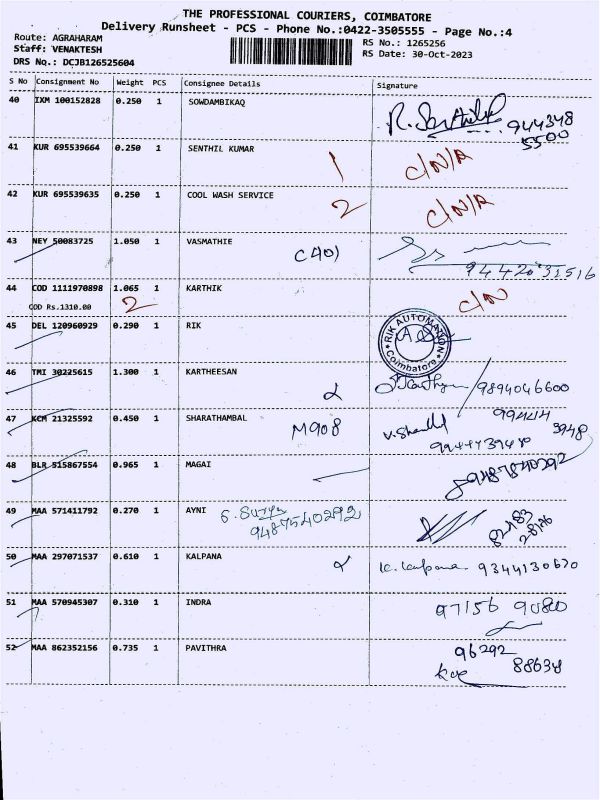 THE PROFESSIONAL COURIERS, COIMBATORE
Delivery Runsheet - PCS - Phone No.:0422-3505555 - Page No.:4
Route: AGRAHARAM
RS No.: 1265256
Staff: VENAKTESH
RS Date: 30-Oct-2023
DRS No.: DCJB126525604
S No Consignment No Weight PCS Consignee Details Signature
40 IXM 100152828 0.250 1 SOWDAMBIKAQ
944348
5500
41 KUR 695539664 0.250 1 SENTHIL KUMAR 1 C/N/A
42 KUR 695539635 0.250 1 COOL WASH SERVICE 2 C/N/A
43 NEY 50083725 1.050 1 VASMATHIE C401
44 COD 1111970898 1.065 1 KARTHIK C/N
COD Rs.1310.00 2
45 DEL 120960929 0.290 1 RIK RIK AUTOMATION Coimbatore
46 TMI 30225615 1.300 1 KARTHEESAN 9894046600
47 KCM 21325592 0.450 1 SHARATHAMBAL M908
48 BLR 515867554 0.965 1 MAGAI
49 MAA 571411792 0.270 1 AYNI S. Surya
9487540292
50 MAA 297071537 0.610 1 KALPANA K. Kalpana 9344130670
51 MAA 570945307 0.310 1 INDRA 97156 9080
52 MAA 862352156 0.735 1 PAVITHRA 96292
88634